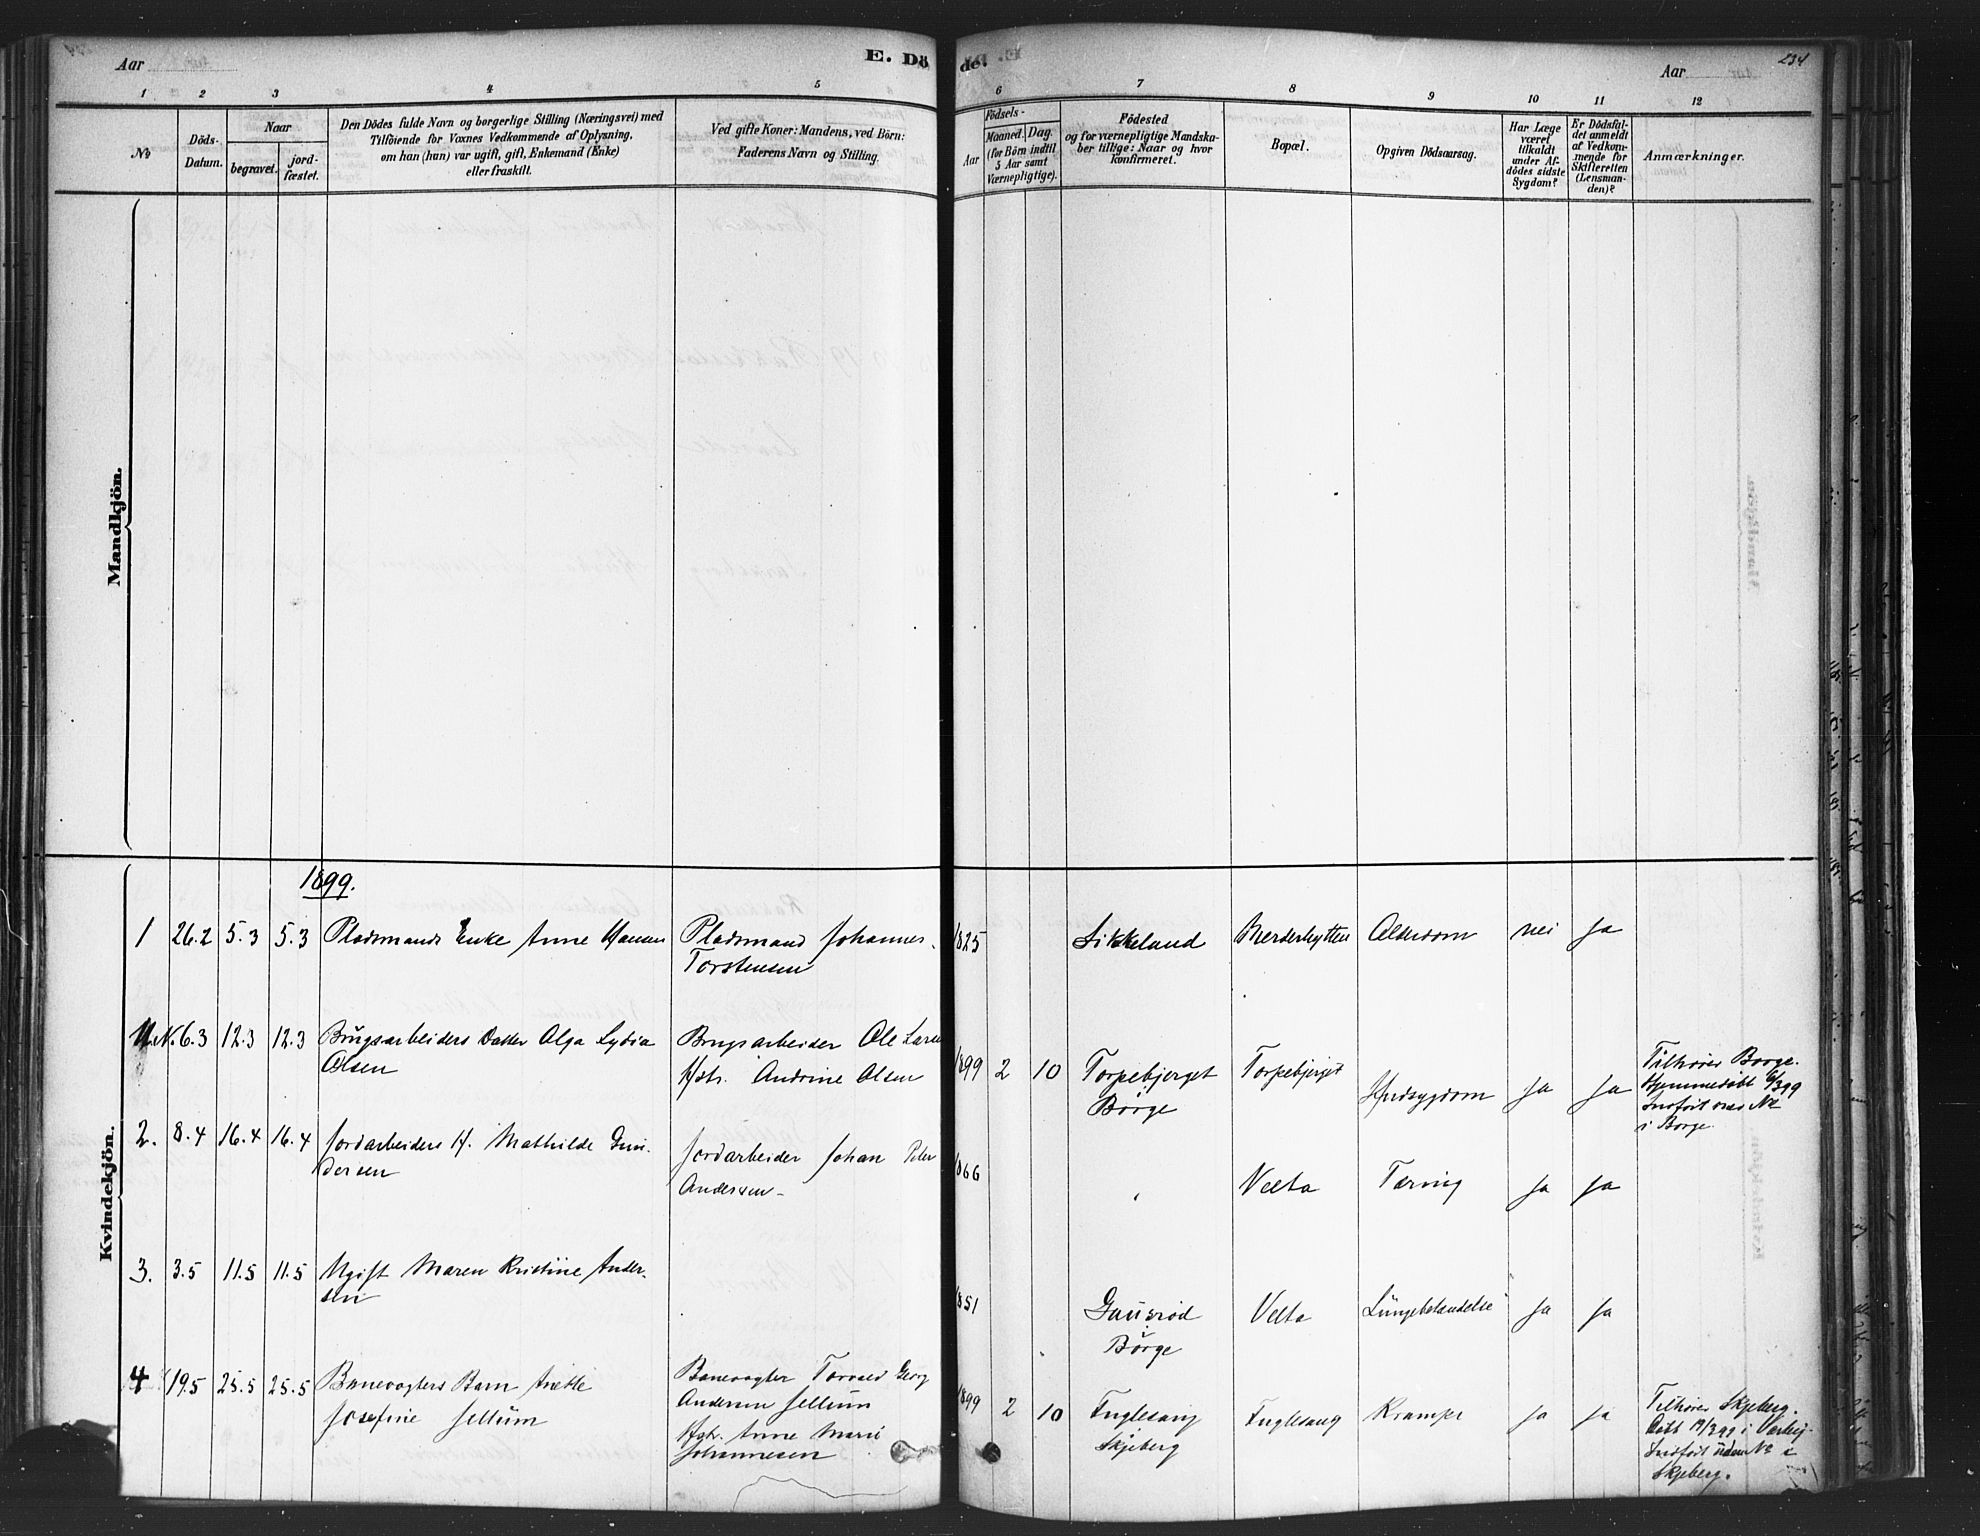 Aar
E. Dö
de.
Aar
234
1 2 3 4 5 6 7 8 9 10 11 12
No
Döds-
Datum.
Naar
begravet. jord-
fæstet.
Den Dödes fulde Navn og borgerlige Stilling (Næringsvei) med
Tilföiende for Voxnes Vedkommende af Oplysning,
om han (hun) var ugift, gift, Enkemand (Enke)
eller fraskilt.
Ved gifte Koner: Mandens, ved Börn:
Faderens Navn og Stilling.
Födsels-
Aar Maaned. Dag.
(for Börn indtil
5 Aar samt
Værnepligtige).
Födested
og for værnepligtige Mandska-
ber tillige: Naar og hvor
konfirmeret.
Bopæl.
Opgiven Dödsaarsag.
Har Læge
været
tilkaldt
under Af-
dödes sidste
Sygdom?
Er Dödsfal-
det anmeldt
af Vedkom-
mende for
Skifteretten
(Lensman-
den)?
Anmærkninger.
Mandkjön.
Kvindekjön.
1899.
1 26.2 5.3 5.3 Pladsmands Enke Anne Hansen Pladsmand Johannes 1825 Sikkeland Alderdom nei Ja
Torstensen
U.N. 6.3 12.3 12.3 Brugsarbeiders Datter Olga Lydia Brugsarbeider Ole 1899 2 10 Torpebjerget Torpebjerget Hjertesygdom Ja Ja Tilhører Borge.
Olsen Hstr. Andrine Olsen Børge Hjemmedøbt 6/3 99
Indført med No
i Borge.
2. 8.4 16.4 16.4 Jordarbeiders H. Mathilde Gun- Jordarbeider Johan Peter 1866 Velta Tæring Ja Ja
dersen Andersen
3. 3.5 11.5 11.5 Ugift Maren Kristine Ander- 1851 Gausrød Velta Lungebetændelse Ja Ja
sen Børge
4 19.5 25.5 25.5 Banevogters Barn Anette Banevogter Torvald Georg 1899 2 10 Fuglesang Fuglesang Krampe Ja Ja Tilhører Skjeberg.
Josefine Jellum Andersen Jellum Skjeberg Indført uden No i
Hstr. Anne Marie Skjeberg.
Johannesen